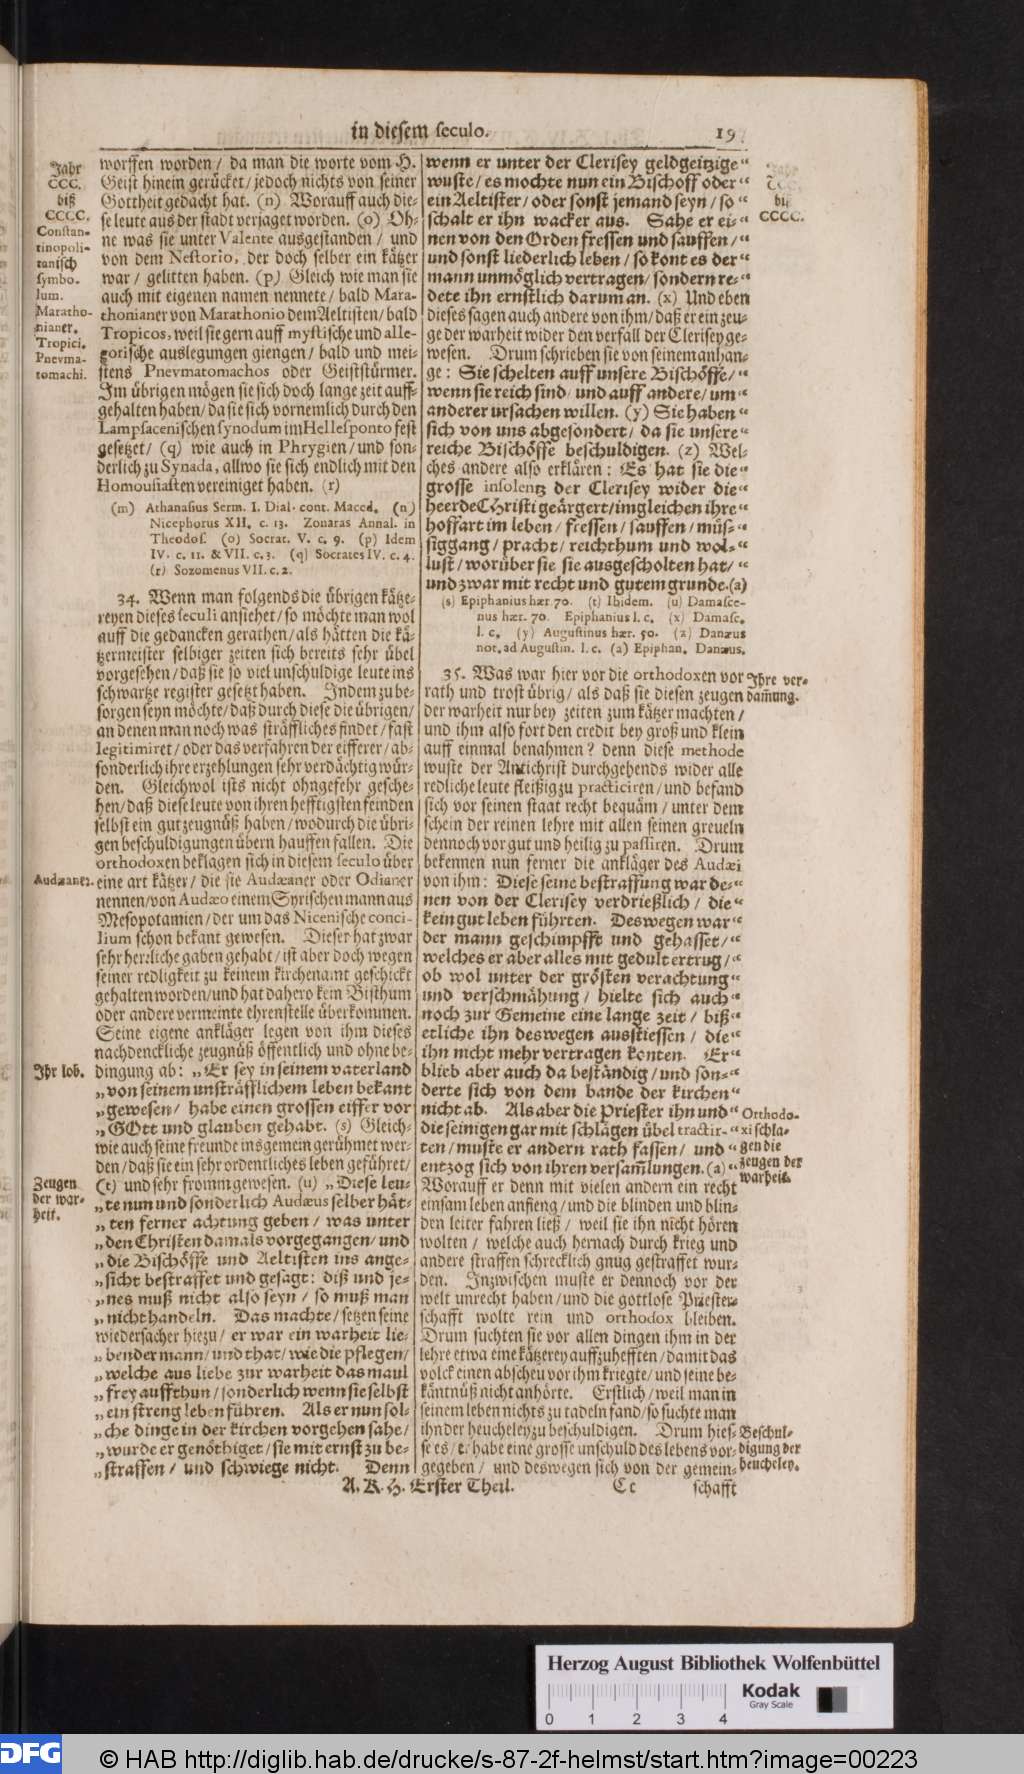 in diesem seculo.
19
Jahr
CCC.
biß
CCCC.
Constan-
tinopoli-
tanisch
symbo-
lum.
Maratho-
nianer.
Tropici.
Pnevma-
tomachi.
worffen worden / da man die worte vom H.
Geist hinein gerücket / jedoch nichts von seiner
Gottheit gedacht hat. (n) Worauff auch die-
se leute aus der stadt verjaget worden. (o) Oh-
ne was sie unter Valente ausgestanden / und
von dem Nestorio, der doch selber ein kätzer
war / gelitten haben. (p) Gleich wie man sie
auch mit eigenen namen nennete / bald Mara-
thonianer von Marathonio dem Aeltisten / bald
Tropicos, weil sie gern auff mystische und alle-
gorische auslegungen giengen / bald und mei-
stens Pnevmatomachos oder Geiststürmer.
Im übrigen mögen sie sich doch lange zeit auff-
gehalten haben / da sie sich vornemlich durch den
Lampsacenischen synodum im Hellesponto fest
gesetzet / (q) wie auch in Phrygien / und son-
derlich zu Synada, allwo sie sich endlich mit den
Homousiasten vereiniget haben. (r)
(m) Athanasius Serm. I. Dial. cont. Maced. (n)
Nicephorus XII. c. 13. Zonaras Annal. in
Theodos. (o) Socrat. V. c. 9. (p) Idem
IV. c. 11. & VII. c. 3. (q) Socrates IV. c. 4.
(r) Sozomenus VII. c. 2.
34. Wenn man folgends die übrigen kätze-
reyen dieses seculi ansiehet / so möchte man wol
auff die gedancken gerathen / als hätten die kä-
tzermeister selbiger zeiten sich bereits sehr übel
vorgesehen / daß sie so viel unschuldige leute ins
schwartze register gesetzt haben. Indem zu be-
sorgen seyn möchte / daß durch diese die übrigen /
an denen man noch was sträffliches findet / fast
legitimiret / oder das verfahren der eifferer / ab-
sonderlich ihre erzehlungen sehr verdächtig wür-
den. Gleichwol ists nicht ohngefehr gesche-
hen / daß diese leute von ihren hefftigsten feinden
selbst ein gut zeugnüß haben / wodurch die übri-
gen beschuldigungen übern hauffen fallen. Die
orthodoxen beklagen sich in diesem seculo über
Audæaner. eine art kätzer / die sie Audæaner oder Odianer
nennen / von Audæo einem Syrischen mann aus
Mesopotamien / der um das Nicenische conci-
lium schon bekant gewesen. Dieser hat zwar
sehr herrliche gaben gehabt / ist aber doch wegen
seiner redligkeit zu keinem kirchenamt geschickt
gehalten worden / und hat dahero kein Bisthum
oder andere vermeinte ehrenstelle überkommen.
Seine eigene ankläger legen von ihm dieses
nachdenckliche zeugnüß öffentlich und ohne be-
Ihr lob. dingung ab: „Er sey in seinem vaterland
„von seinem unsträfflichem leben bekant
„gewesen / habe einen grossen eiffer vor
„GOtt und glauben gehabt. (s) Gleich-
wie auch seine freunde insgemein gerühmet wer-
den / daß sie ein sehr ordentliches leben geführet /
Zeugen
der war-
heit.
(t) und sehr fromm gewesen. (u) „Diese leu-
„te nun und sonderlich Audæus selber hät-
„ten ferner achtung geben / was unter
„den Christen damals vorgegangen / und
„die Bischöffe und Aeltisten ins ange-
„sicht bestraffet und gesagt: diß und je-
„nes muß nicht also seyn / so muß man
„nicht handeln. Das machte / setzen seine
wiedersacher hiezu / er war ein warheit lie-
„bender mann / und that / wie die pflegen /
„welche aus liebe zur warheit das maul
„frey auffthun / sonderlich wenn sie selbst
„ein streng leben führen. Als er nun sol-
„che dinge in der kirchen vorgehen sahe /
„wurde er genöthiget / sie mit ernst zu be-
„straffen / und schwiege nicht. Denn
CCC.
biß
CCCC.
wenn er unter der Clerisey geldgeitzige“
wuste / es mochte nun ein Bischoff oder“
ein Aeltister / oder sonst jemand seyn / so“
schalt er ihn wacker aus. Sahe er ei-“
nen von den Orden fressen und sauffen /“
und sonst liederlich leben / so kont es der“
mann unmöglich vertragen / sondern re-“
dete ihn ernstlich darum an. (x) Und eben
dieses sagen auch andere von ihm / daß er ein zeu-
ge der warheit wider den verfall der Clerisey ge-
wesen. Drum schrieben sie von seinem anhan-
ge: Sie schelten auff unsere Bischöffe /“
wenn sie reich sind / und auff andere / um“
anderer ursachen willen. (y) Sie haben“
sich von uns abgesondert / da sie unsere“
reiche Bischöffe beschuldigen. (z) Wel-
ches andere also erklären: Es hat sie die“
grosse insolentz der Clerisey wider die“
heerde CHristi geärgert / imgleichen ihre“
hoffart im leben / fressen / sauffen / müs-“
siggang / pracht / reichthum und wol-“
lust / worüber sie sie ausgescholten hat /“
und zwar mit recht und gutem grunde. (a)
(s) Epiphanius hær. 70. (t) Ibidem. (u) Damasce-
nus hær. 70. Epiphanius l. c. (x) Damasc.
l. c. (y) Augustinus hær. 50. (z) Danæus
not. ad Augustin. l. c. (a) Epiphan. Danæus.
35. Was war hier vor die orthodoxen vor Ihre ver-
rath und trost übrig / als daß sie diesen zeugen dam̃ung.
der warheit nur bey zeiten zum kätzer machten /
und ihm also fort den credit bey groß und klein
auff einmal benahmen? denn diese methode
wuste der Antichrist durchgehends wider alle
redliche leute fleißig zu practiciren / und befand
sich vor seinen staat recht bequäm / unter dem
schein der reinen lehre mit allen seinen greueln
dennoch vor gut und heilig zu passiren. Drum
bekennen nun ferner die ankläger des Audæi
von ihm: Diese seine bestraffung war de-“
nen von der Clerisey verdrießlich / die“
kein gut leben führten. Deswegen war“
der mann geschimpfft und gehasset /“
welches er aber alles mit gedult ertrug /“
ob wol unter der grösten verachtung“
und verschmähung / hielte sich auch“
noch zur Gemeine eine lange zeit / biß“
etliche ihn deswegen ausstiessen / die“
ihn nicht mehr vertragen konten. Er“
blieb aber auch da beständig / und son-“
derte sich von dem bande der kirchen“
nicht ab. Als aber die Priester ihn und“
die seinigen gar mit schlägen übel tractir-“
ten / muste er andern rath fassen / und“
entzog sich von ihren versam̃lungen. (a)“
Orthodo-
xi schla-
gen die
zeugen der
warheit.
Worauff er denn mit vielen andern ein recht
einsam leben anfieng / und die blinden und blin-
den leiter fahren ließ / weil sie ihn nicht hören
wolten / welche auch hernach durch krieg und
andere straffen schrecklich gnug gestraffet wur-
den. Inzwischen muste er dennoch vor der
welt unrecht haben / und die gottlose Priester-
schafft wolte rein und orthodox bleiben.
Drum suchten sie vor allen dingen ihm in der
lehre etwa eine kätzerey auffzuhefften / damit das
volck einen abscheu vor ihm kriegte / und seine be-
käntnüß nicht anhörte. Erstlich / weil man in
seinem leben nichts zu tadeln fand / so suchte man
ihn der heucheley zu beschuldigen. Drum hies-
se es / er habe eine grosse unschuld des lebens vor-
gegeben / und deswegen sich von der gemein-
Beschul-
digung der
heucheley.
A. K. H. Erster Theil.
Cc
schafft
Herzog August Bibliothek Wolfenbüttel
0 1 2 3 4
Kodak
Gray Scale
DFG
© HAB http://diglib.hab.de/drucke/s-87-2f-helmst/start.htm?image=00223